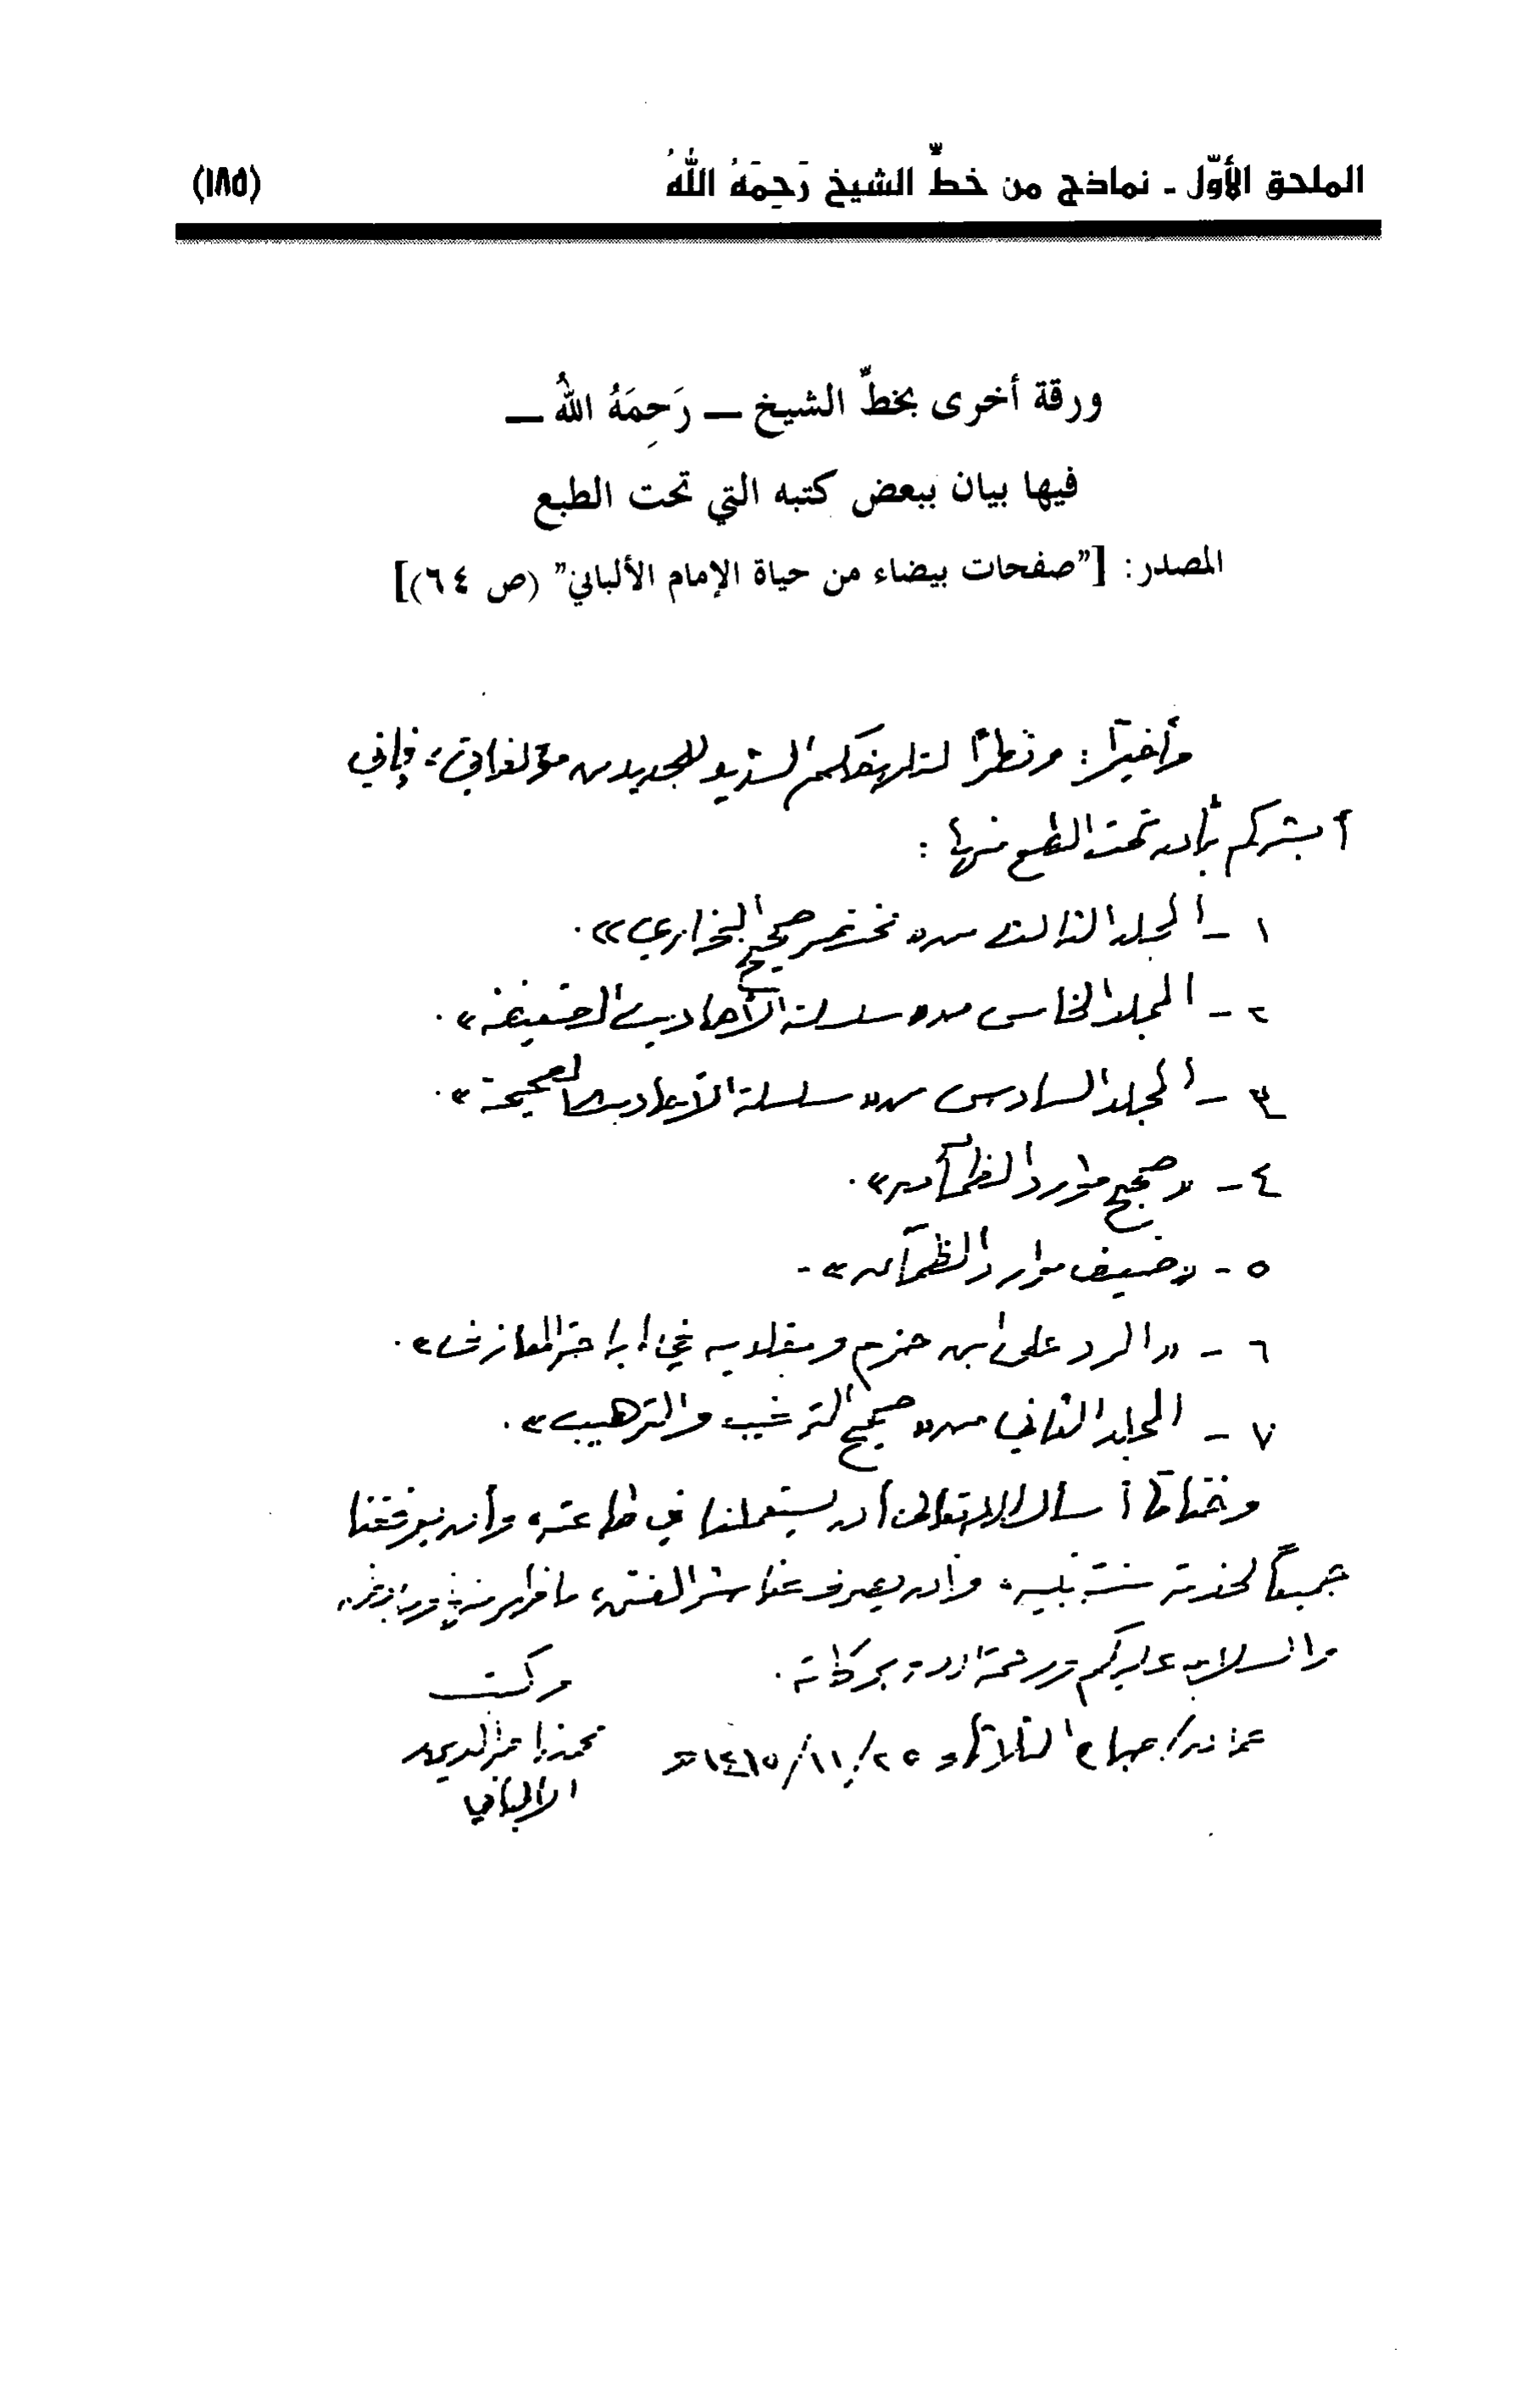 الملحق الأوّل - نماذج من خطِّ الشيخ رَحِمَهُ اللهُ (١٨٥)
ورقة أخرى بخطِّ الشيخ — رَحِمَهُ اللهُ —
فيها بيان ببعض كتبه التي تحت الطبع
المصدر: ["صفحات بيضاء من حياة الإمام الألباني" (ص ٦٤)]
وأخيراً: ونظراً لتلهفكم الشديد للجديد من مؤلفاتي؛ فإني
أبشركم بأن تحت الطبع منها:
١ - المجلد الثالث من «مختصر صحيح البخاري».
٢ - المجلد الخامس من «سلسلة الأحاديث الضعيفة».
٣ - المجلد السادس من «سلسلة الأحاديث الصحيحة».
٤ - «صحيح موارد الظمآن».
٥ - «ضعيف موارد الظمآن».
٦ - «الرد على ابن حزم ومقلديه في إباحة المعازف».
٧ - المجلد الثاني من «صحيح الترغيب والترهيب».
وختاماً أسأل الله تعالى أن يستعملنا في طاعته، وأن يوفقنا
جميعاً لخدمة سنة نبيه، وأن يصرف عنا شر الفتن، ما ظهر منها وما بطن،
والسلام عليكم ورحمة الله وبركاته.
وكتب
عمان / صباح الثلاثاء ٢٥/١١/١٤١٥هـ
محمد ناصر الدين
الألباني